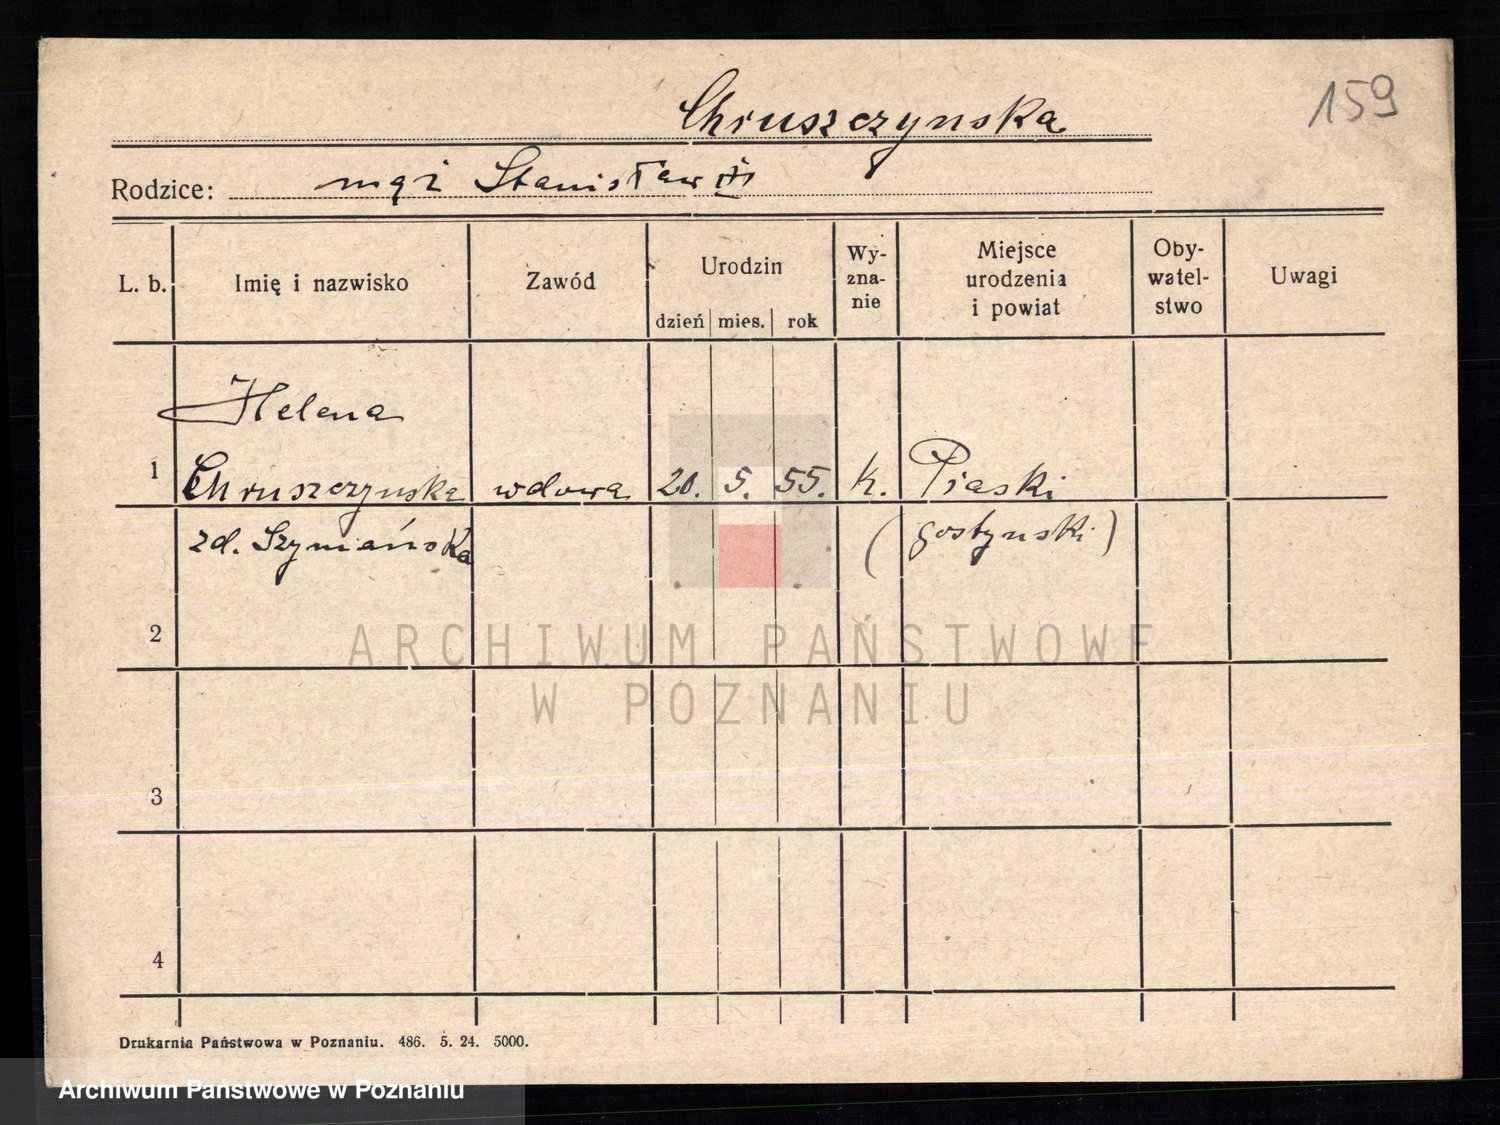 159
Chruszczynska
Rodzice: mąż Stanisław
L. b. Imię i nazwisko Zawód Urodzin Wy-zna-nie Miejsce urodzenia i powiat Oby-watel-stwo Uwagi
dzień mies. rok
Helena
1 Chruszczynska wdowa 20. 5. 55. k. Piaski
zd. Szymiańska (gostynski)
2
ARCHIWUM PAŃSTWOWE
W POZNANIU
3
4
Drukarnia Państwowa w Poznaniu. 486. 5. 24. 5000.
Archiwum Państwowe w Poznaniu